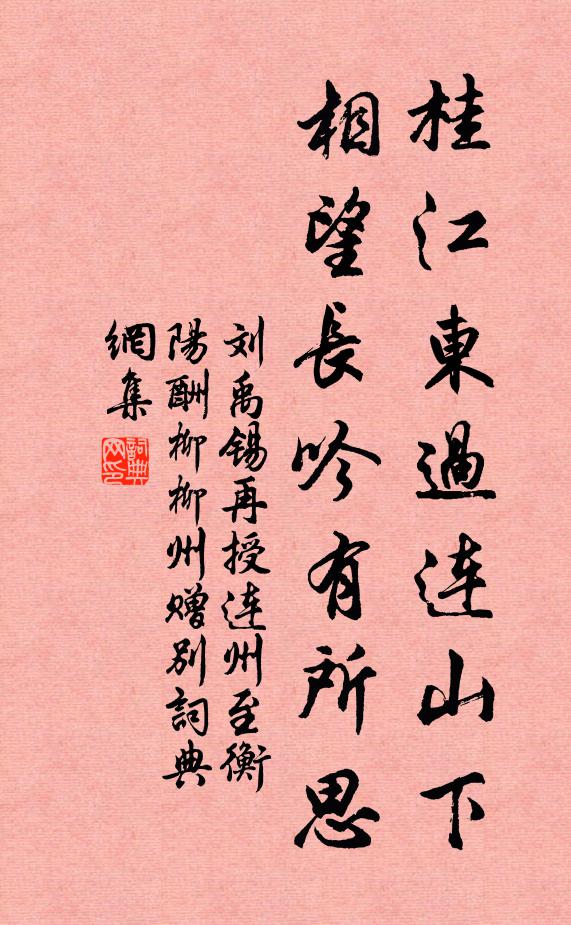 桂江東過连山下
相望長吟有所思
刘禹锡再授连州至衡
陽酬柳柳州赠别詞典
網集
詞典
网印